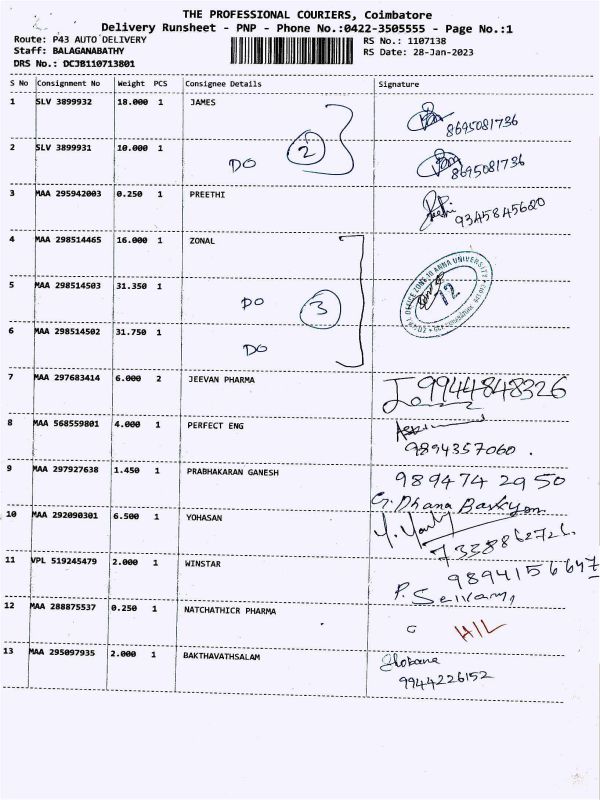 THE PROFESSIONAL COURIERS, Coimbatore
Delivery Runsheet - PNP - Phone No.:0422-3505555 - Page No.:1
Route: P43 AUTO DELIVERY
RS No.: 1107138
Staff: BALAGANABATHY
RS Date: 28-Jan-2023
DRS No.: DCJB110713801
S No Consignment No Weight PCS Consignee Details Signature
1 SLV 3899932 18.000 1 JAMES
8695081736
2 SLV 3899931 10.000 1
DO 2
8695081736
3 MAA 295942003 0.250 1 PREETHI
9345845620
4 MAA 298514465 16.000 1 ZONAL
5 MAA 298514503 31.350 1
DO 3
12
6 MAA 298514502 31.750 1
DO
7 MAA 297683414 6.000 2 JEEVAN PHARMA
9944848326
8 MAA 568559801 4.000 1 PERFECT ENG
9894357060.
9 MAA 297927638 1.450 1 PRABHAKARAN GANESH
989474 29 50
G. Dhana
10 MAA 292090301 6.500 1 YOHASAN
7338862726.
11 VPL 519245479 2.000 1 WINSTAR
9894156647
P. Selvam,
12 MAA 288875537 0.250 1 NATCHATHICR PHARMA
H/L
13 MAA 295097935 2.000 1 BAKTHAVATHSALAM
9944226152